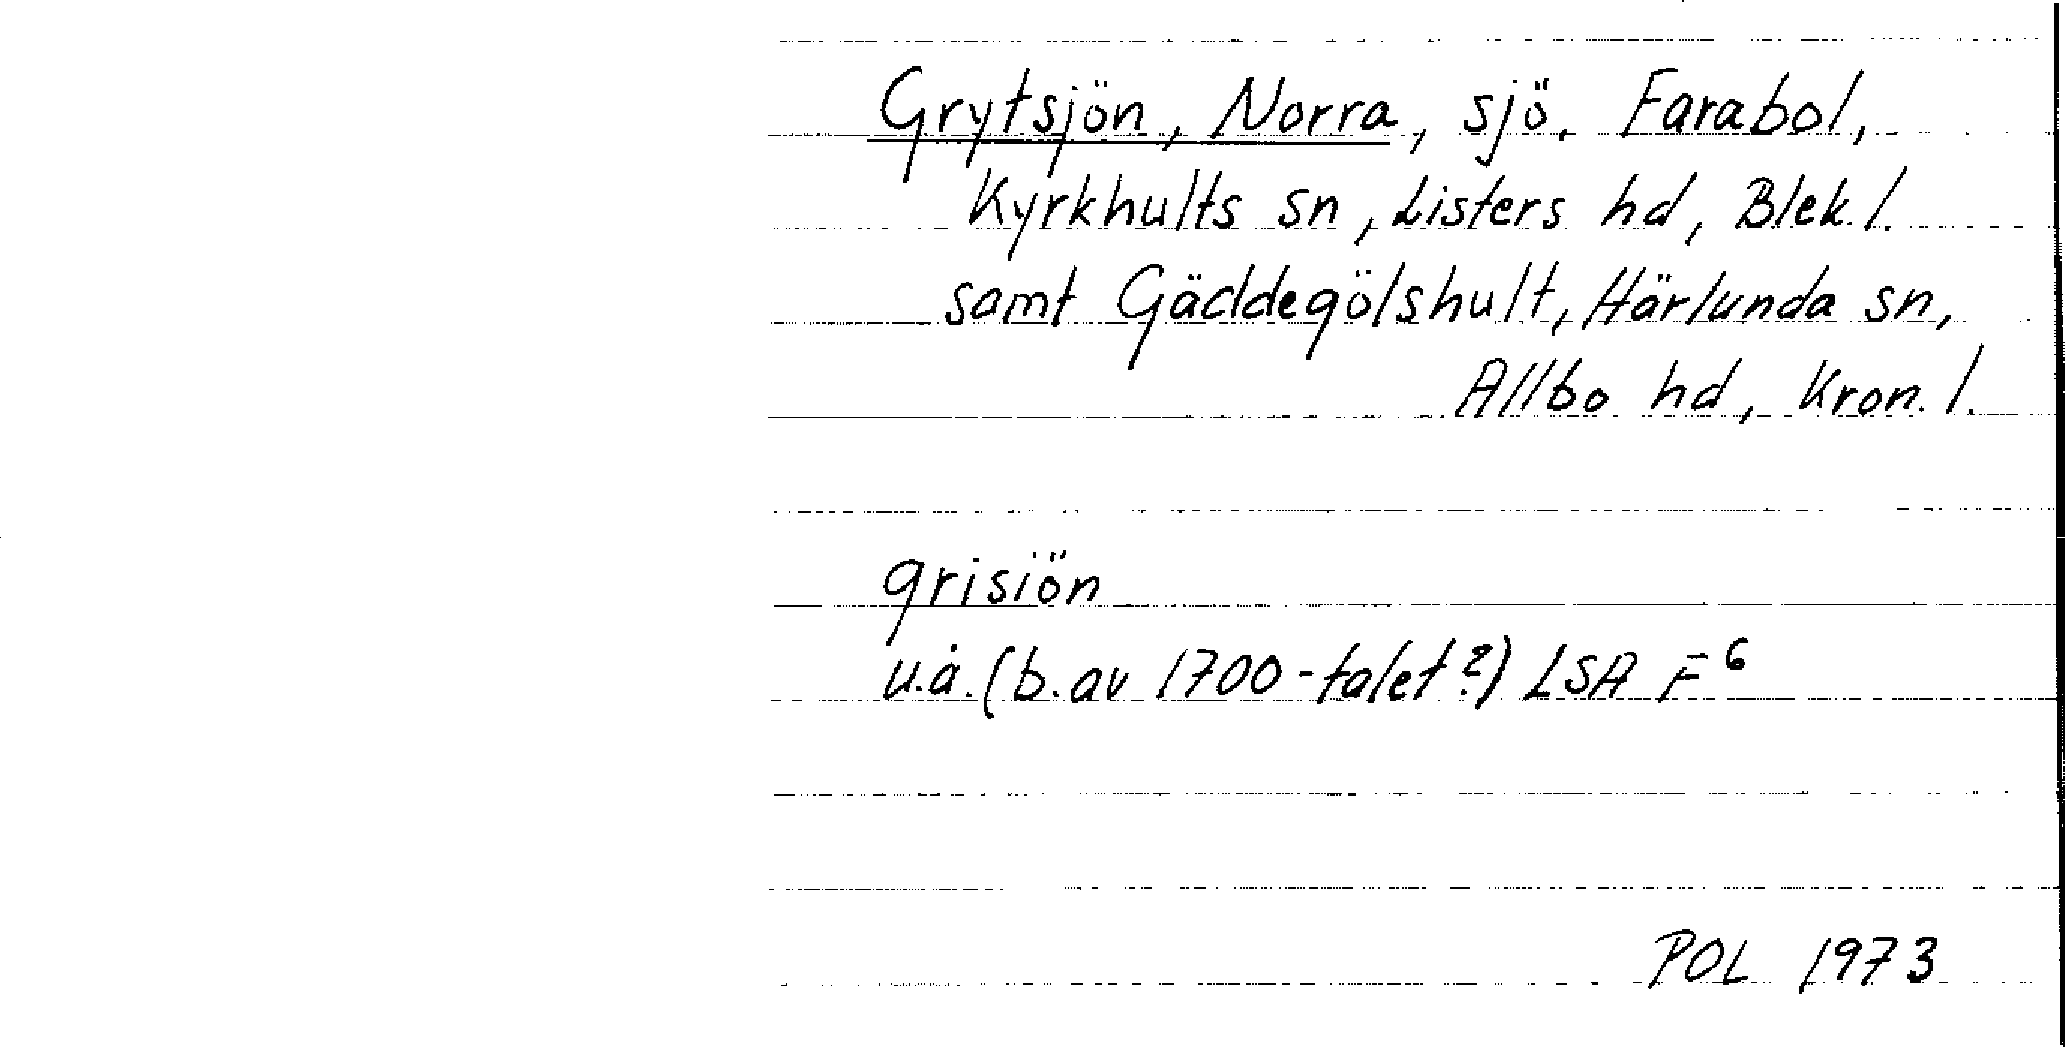 Grytsjön, Norra, sjö, Farabol,
Kyrkhults sn, Listers hd, Blek. l.
samt Gäddegölshult, Härlunda sn,
Allbo hd, Kron. l.
grisiön
u.å. (b. av 1700-talet?) LSA F6
POL 1973